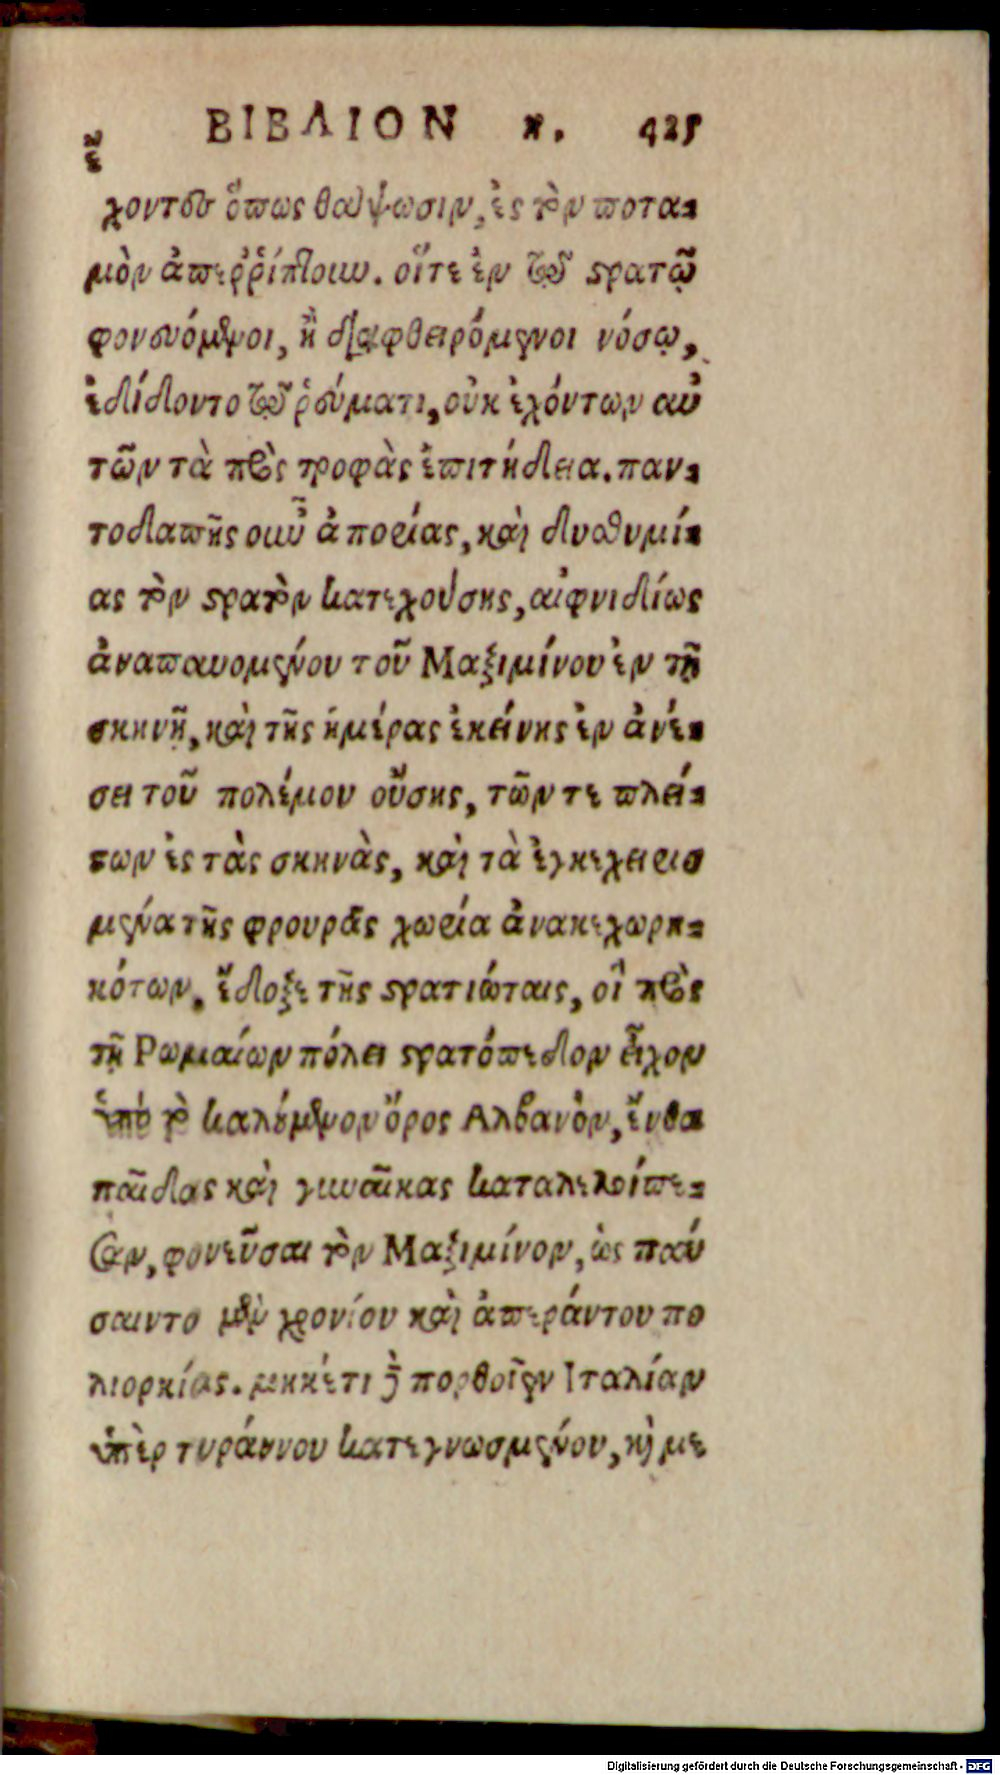 ΒΙΒΛΙΟΝ η. 425
χοντες ὅπως θάψωσιν, ἐς τὸν ποτα-
μὸν ἀπεῤῥίπτουν. οἵτε ἐν τῷ στρατῷ
φονευόμενοι, ἢ διαφθειρόμενοι νόσῳ,
ἐδίδοντο τῷ ῥεύματι, οὐκ ἐχόντων αὐ
τῶν τὰ πρὸς τροφὰς ἐπιτήδεια. παν-
τοδαπῆς οὖν ἀπορίας, καὶ δυσθυμί-
ας τὸν στρατὸν κατεχούσης, αἰφνιδίως
ἀναπαυομένου τοῦ Μαξιμίνου ἐν τῇ
σκηνῇ, καὶ τῆς ἡμέρας ἐκείνης ἐν ἀνέ-
σει τοῦ πολέμου οὔσης, τῶν τε πλεί-
στων ἐς τὰς σκηνὰς, καὶ τὰ ἐγκεχειρισ
μένα τῆς φρουρᾶς χωρία ἀνακεχωρη-
κότων. ἔδοξε τῆς στρατιώταις, οἳ πρὸς
τῇ Ρωμαίων πόλει στρατόπεδον εἶχον
ὑπὸ τὸ καλούμενον ὄρος Αλβανὸν, ἔνθα
παῖδας καὶ γυναῖκας καταλελοίπε-
σαν, φονεῦσαι τὸν Μαξιμίνον, ὡς παύ
σαιντο μὲν χρονίου καὶ ἀπεράντου πο
λιορκίας. μηκέτι δὲ πορθοῖεν Ιταλίαν
ὑπὲρ τυράννου κατεγνωσμένου, καὶ με
Digitalisierung gefördert durch die Deutsche Forschungsgemeinschaft - DFG